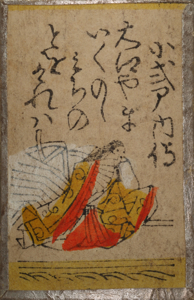 小式部内侍
大江山
いくのゝ
みちの
とをけれハ